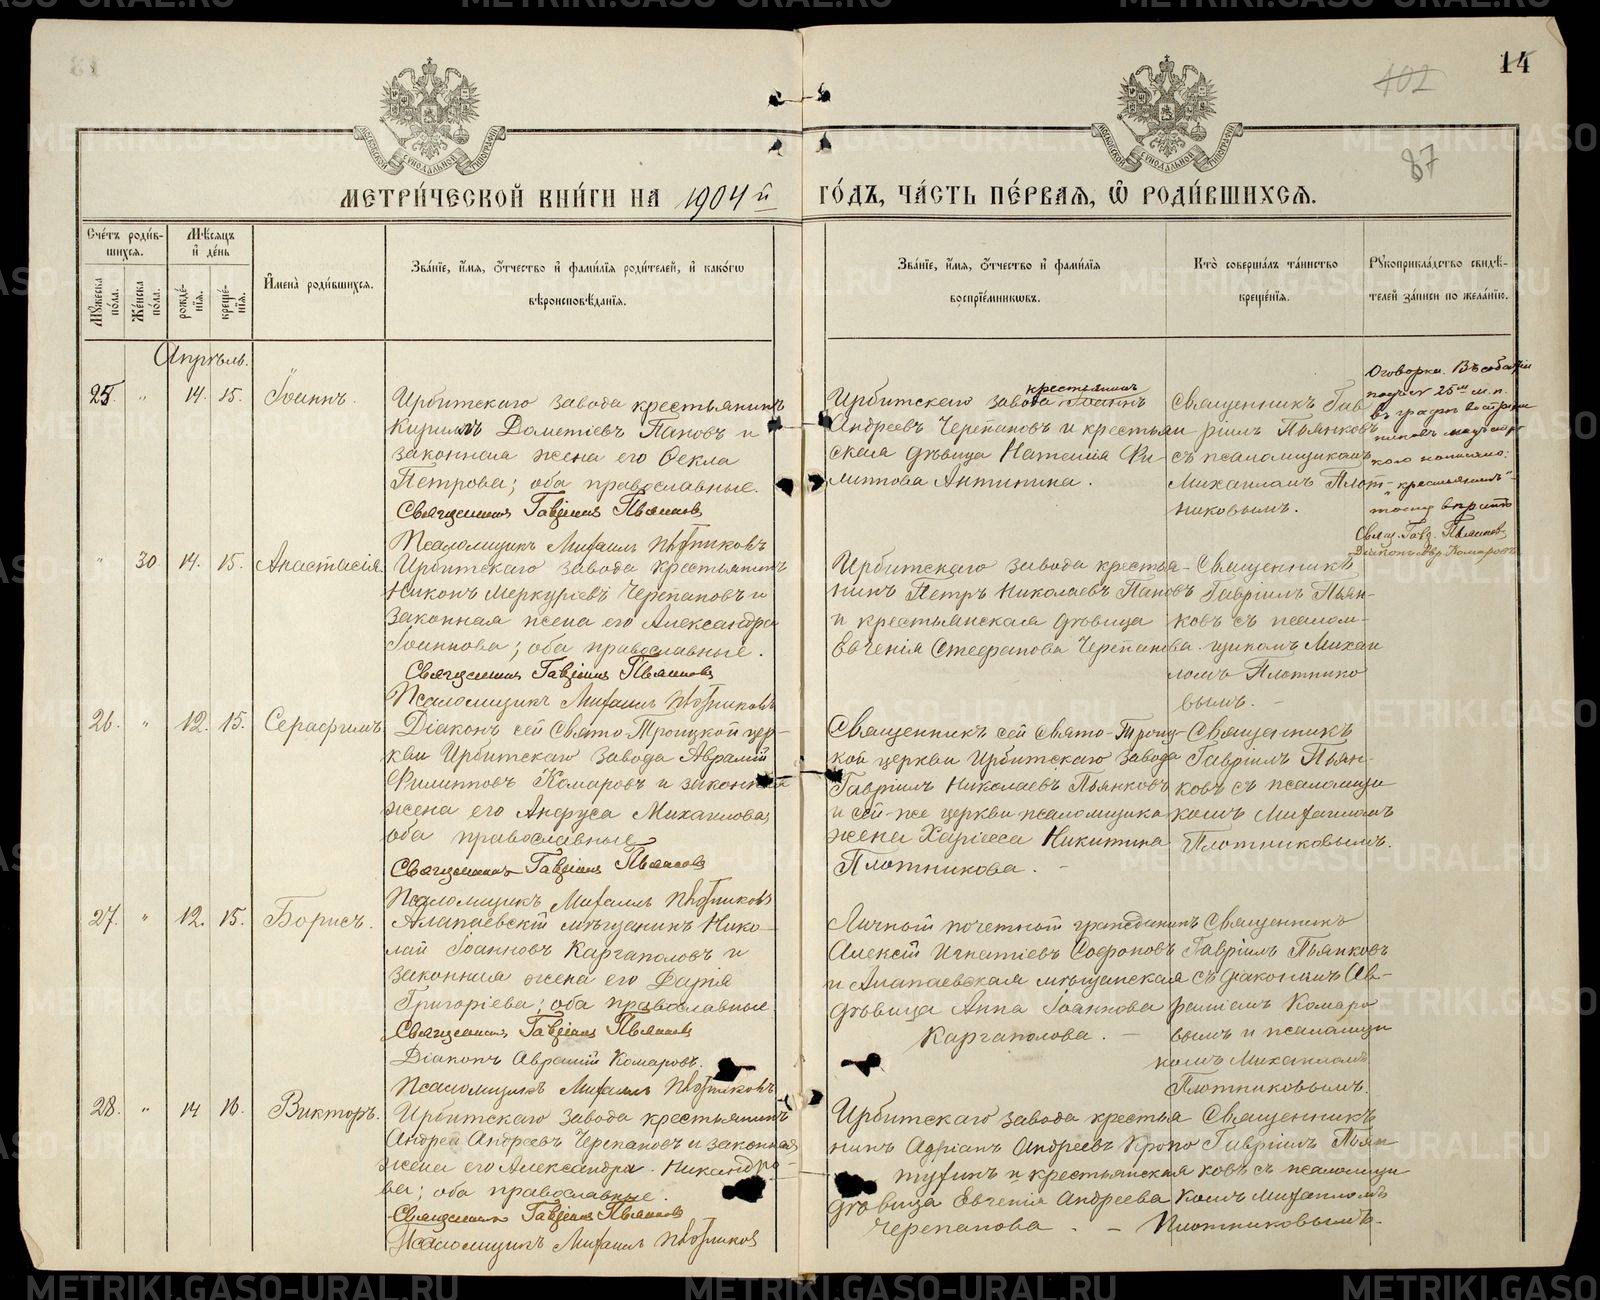 14
402
87
МЕТРИ́ЧЕСКОЙ КНИ́ГИ НА 1904й ГО́ДЪ, ЧА́СТЬ ПЕ́РВАЯ, Ѡ҆ РОДИ́ВШИХСЯ.
Счéтъ роди́в-
шихся.
Мѣ́сяцъ
и҆ дéнь
Мꙋ́жеска
по́ла.
Жéнска
по́ла.
рождé-
нїя.
крещé-
нїя.
И҆менà роди́вшихся.
Зва́нїе, и҆́мя, ѻ҆́тчество и҆ фами́лїя роди́телей, и҆ како́гѡ
вѣроисповѣ́данїя.
Зва́нїе, и҆́мя, ѻ҆́тчество и҆ фами́лїя
воспрїе́мникѡвъ.
Кто̀ соверша́лъ та́инство
креще́нїя.
Рꙋкоприкла́дство свидѣ́-
телей за́писи по жела́нїю.
Апрѣль.
25. " 14. 15. Іоаннъ.
Ирбитскаго завода крестьянинъ
Кириллъ Дометіевъ Пановъ и
законная жена его Ѳекла
Петрова; оба православные.
Священникъ Гавріилъ Пьянковъ
Псаломщикъ Михаилъ Плотниковъ
крестьянинъ
Ирбитскаго завода Іоаннъ
Андреевъ Черепановъ и крестьян
ская дѣвица Наталія Фи
липпова Антипина.
Священникъ Гав
ріилъ Пьянковъ
съ псаломщикомъ
Михаиломъ Плот-
никовымъ.
Оговорка.
25
въ графѣ воспріем
никовъ
написано:
"крестьянинъ"
Свящ. Гавр. Пьянковъ
Діаконъ Авр. Комаровъ
" 30 14. 15. Анастасія.
Ирбитскаго завода крестьянинъ
Никонъ Меркуріевъ Черепановъ и
законная жена его Александра
Іоаннова; оба православные.
Священникъ Гавріилъ Пьянковъ
Псаломщикъ Михаилъ Плотниковъ
Ирбитскаго завода крестья-
нинъ Петръ Николаевъ Пановъ
и крестьянская дѣвица
Евгенія Стефанова Черепанова.
Священникъ
Гавріилъ Пьян-
ковъ съ псалом-
щикомъ Михаи
ломъ Плотнико
вымъ. -
26. " 12. 15. Серафимъ
Діаконъ сей Свято-Троицкой цер-
кви Ирбитскаго завода Авраамій
Филипповъ Комаровъ и законная
жена его Анфуса Михаилова,
оба православные
Священникъ Гавріилъ Пьянковъ
Псаломщикъ Михаилъ Плотниковъ
Священникъ сей Свято-Троиц-
кой церкви Ирбитскаго завода
Гавріилъ Николаевъ Пьянковъ
и сей-же церкви псаломщика
жена Хариесса Никитина
Плотникова. -
Священникъ
Гавріилъ Пьян-
ковъ съ псаломщи
комъ Михаиломъ
Плотниковымъ.
27. " 12. 15. Борисъ.
Алапаевскій мѣщанинъ Нико-
лай Іоанновъ Каргаполовъ и
законная жена его Дарія
Григоріева; оба православные
Священникъ Гавріилъ Пьянковъ
Діаконъ Авраамій Комаровъ.
Псаломщикъ Михаилъ Плотниковъ
Личный почетный гражданинъ
Алексій Игнатіевъ Софоновъ
и Алапаевская мѣщанская
дѣвица Анна Іоаннова
Каргаполова. -
Священникъ
Гавріилъ Пьянковъ
съ діакономъ Ав-
раміемъ Комаро
вымъ и псаломщи
комъ Михаиломъ
Плотниковымъ.
28. " 14 16. Викторъ.
Ирбитскаго завода крестьянинъ
Андрей Андреевъ Черепановъ и законная
жена его Александра Никандро-
ва; оба православные.
Священникъ Гавріилъ Пьянковъ
Псаломщикъ Михаилъ Плотниковъ
Ирбитскаго завода крестья
нинъ Адріанъ Андреевъ Кропо
туринъ и крестьянская
дѣвица Евгенія Андреева
Черепанова. -
Священникъ
Гавріилъ Пьян
ковъ съ псаломщи
комъ Михаиломъ
Плотниковымъ.
METRIKI.GASO-URAL.RU